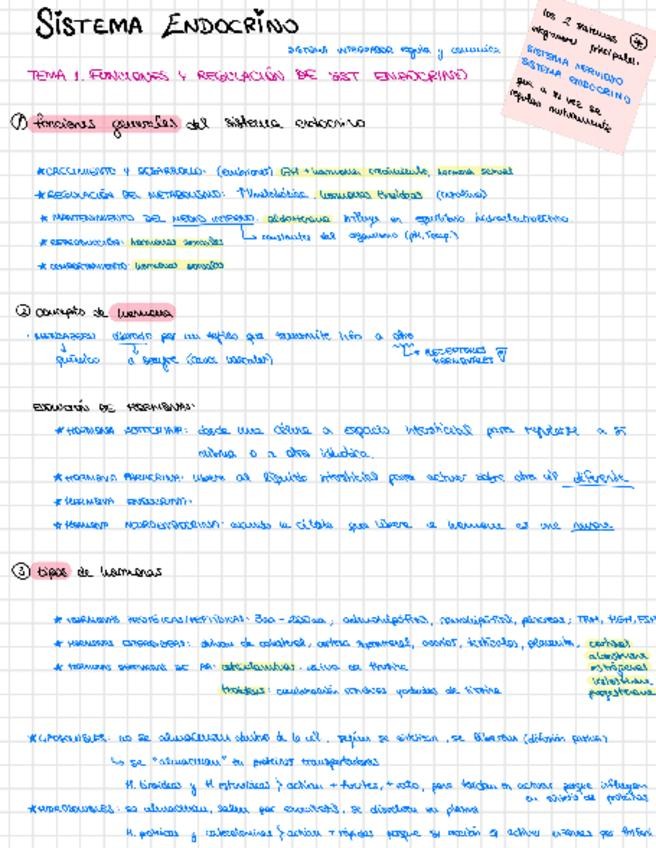 SISTEMA ENDOCRINO
SISTEMA INTEGRADOR regula y comunica
los 2 sistemas
integradores principales:
SISTEMA NERVIOSO
SISTEMA ENDOCRINO
que a su vez se
regulan mutuamente
TEMA 1. FUNCIONES Y REGULACIÓN DE SIST ENDOCRINO
① funciones generales del sistema endocrino
* CRECIMIENTO Y DESARROLLO: GH + hormona crecimiento, hormona sexual
* REGULACIÓN DEL METABOLISMO: hormonas tiroideas
* MANTENIMIENTO DEL MEDIO INTERNO: aldosterona influye en equilibrio hidroelectrolítico
constantes del organismo (pH, Temp.)
* REPRODUCCIÓN: hormonas sexuales
* COMPORTAMIENTO: hormonas sexuales
② concepto de hormona
MENSAJERO liberado por un tejido que transmite info a otro
químico a sangre
RECEPTORES
HORMONALES
DE HORMONAS:
* HORMONA AUTOCRINA: desde una célula a espacio intersticial para regularse a sí
misma o a otra idéntica.
* HORMONA PARACRINA: libera al líquido intersticial para actuar sobre otra cél diferente
* HORMONA ENDOCRINA:
* HORMONA NEUROENDOCRINA: cuando la célula que libera la hormona es una neurona
③ tipos de hormonas
* HORMONAS PROTEICAS/PEPTÍDICAS: adenohipófisis, neurohipófisis, páncreas; TRH,
* HORMONAS ESTEROIDEAS: derivan de colesterol, corteza suprarrenal, ovarios, testículos, placenta, cortisol
aldosterona
estrógenos
testosterona
progesterona
* HORMONAS DERIVADAS DE AA: catecolaminas: deriva de tirosina
tiroideas: combinación yodados de tirosina
* LIPOSOLUBLES: no se almacenan dentro de la cél. según se sintetizan, se liberan (difusión pasiva)
↳ se "almacenan" en proteínas transportadoras
H. tiroideas y H. esteroideas } actúan + fuertes, + rato, pero tardan en actuar porque influyen
en síntesis de proteínas
* HIDROSOLUBLES: se almacenan, salen por exocitosis, se disuelven en plasma
H. proteicas y catecolaminas } actúan + rápidas porque su acción